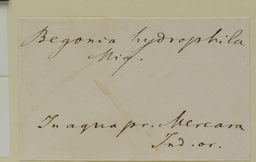 Begonia hydrophila
Miq.
In aqua pr. Mercara
Ind. or.